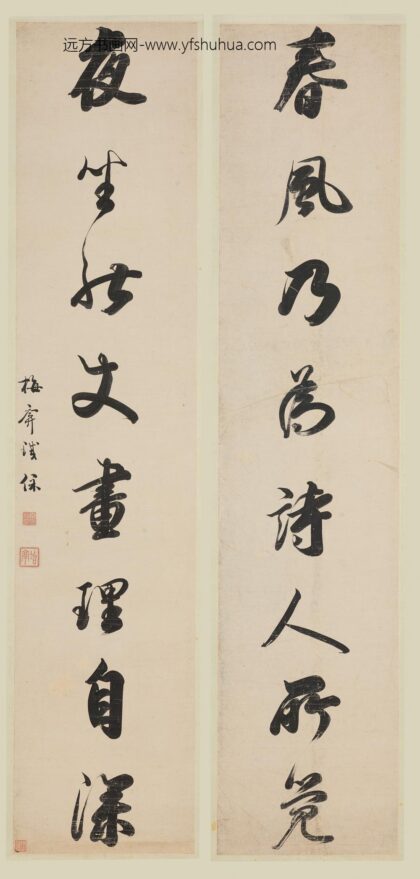 远方书画网-www.yfshuhua.com
春風乃為詩人所覺
夜坐能畫理自深
梅庵鐵保